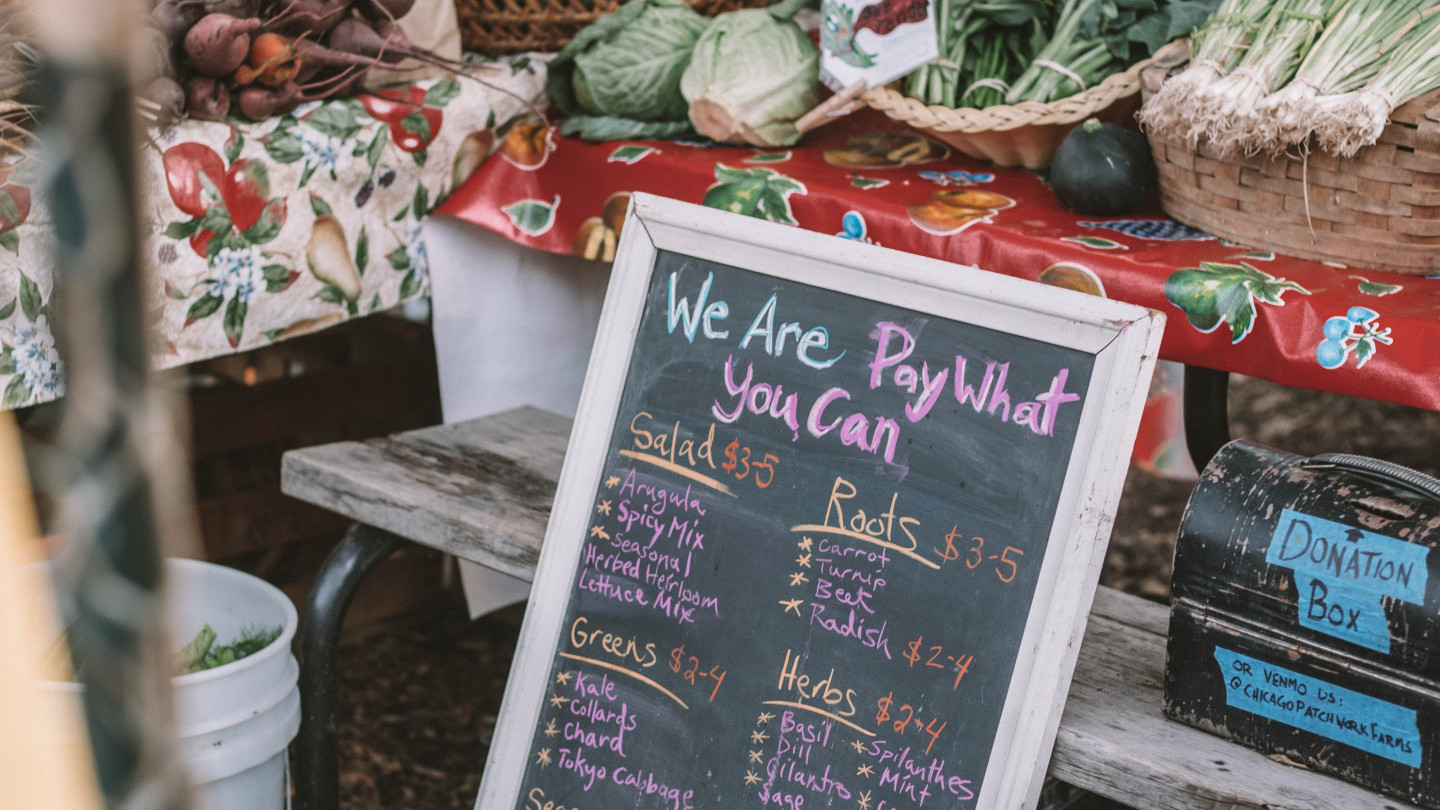 We Are Pay What
You Can
Salad $3-5
* Arugula
* Spicy Mix
* Seasonal
Herbed Heirloom
Lettuce Mix
Greens $2-4
* Kale
* Collards
* Chard
* Tokyo Cabbage
Roots $3-5
* Carrot
* Turnip
* Beet
* Radish $2-4
Herbs $2-4
* Basil
* Dill
* Cilantro
* Sage
* Spilanthes
* Mint
DONATION
BOX
OR VENMO US:
@CHICAGOPATCHWORKFARMS